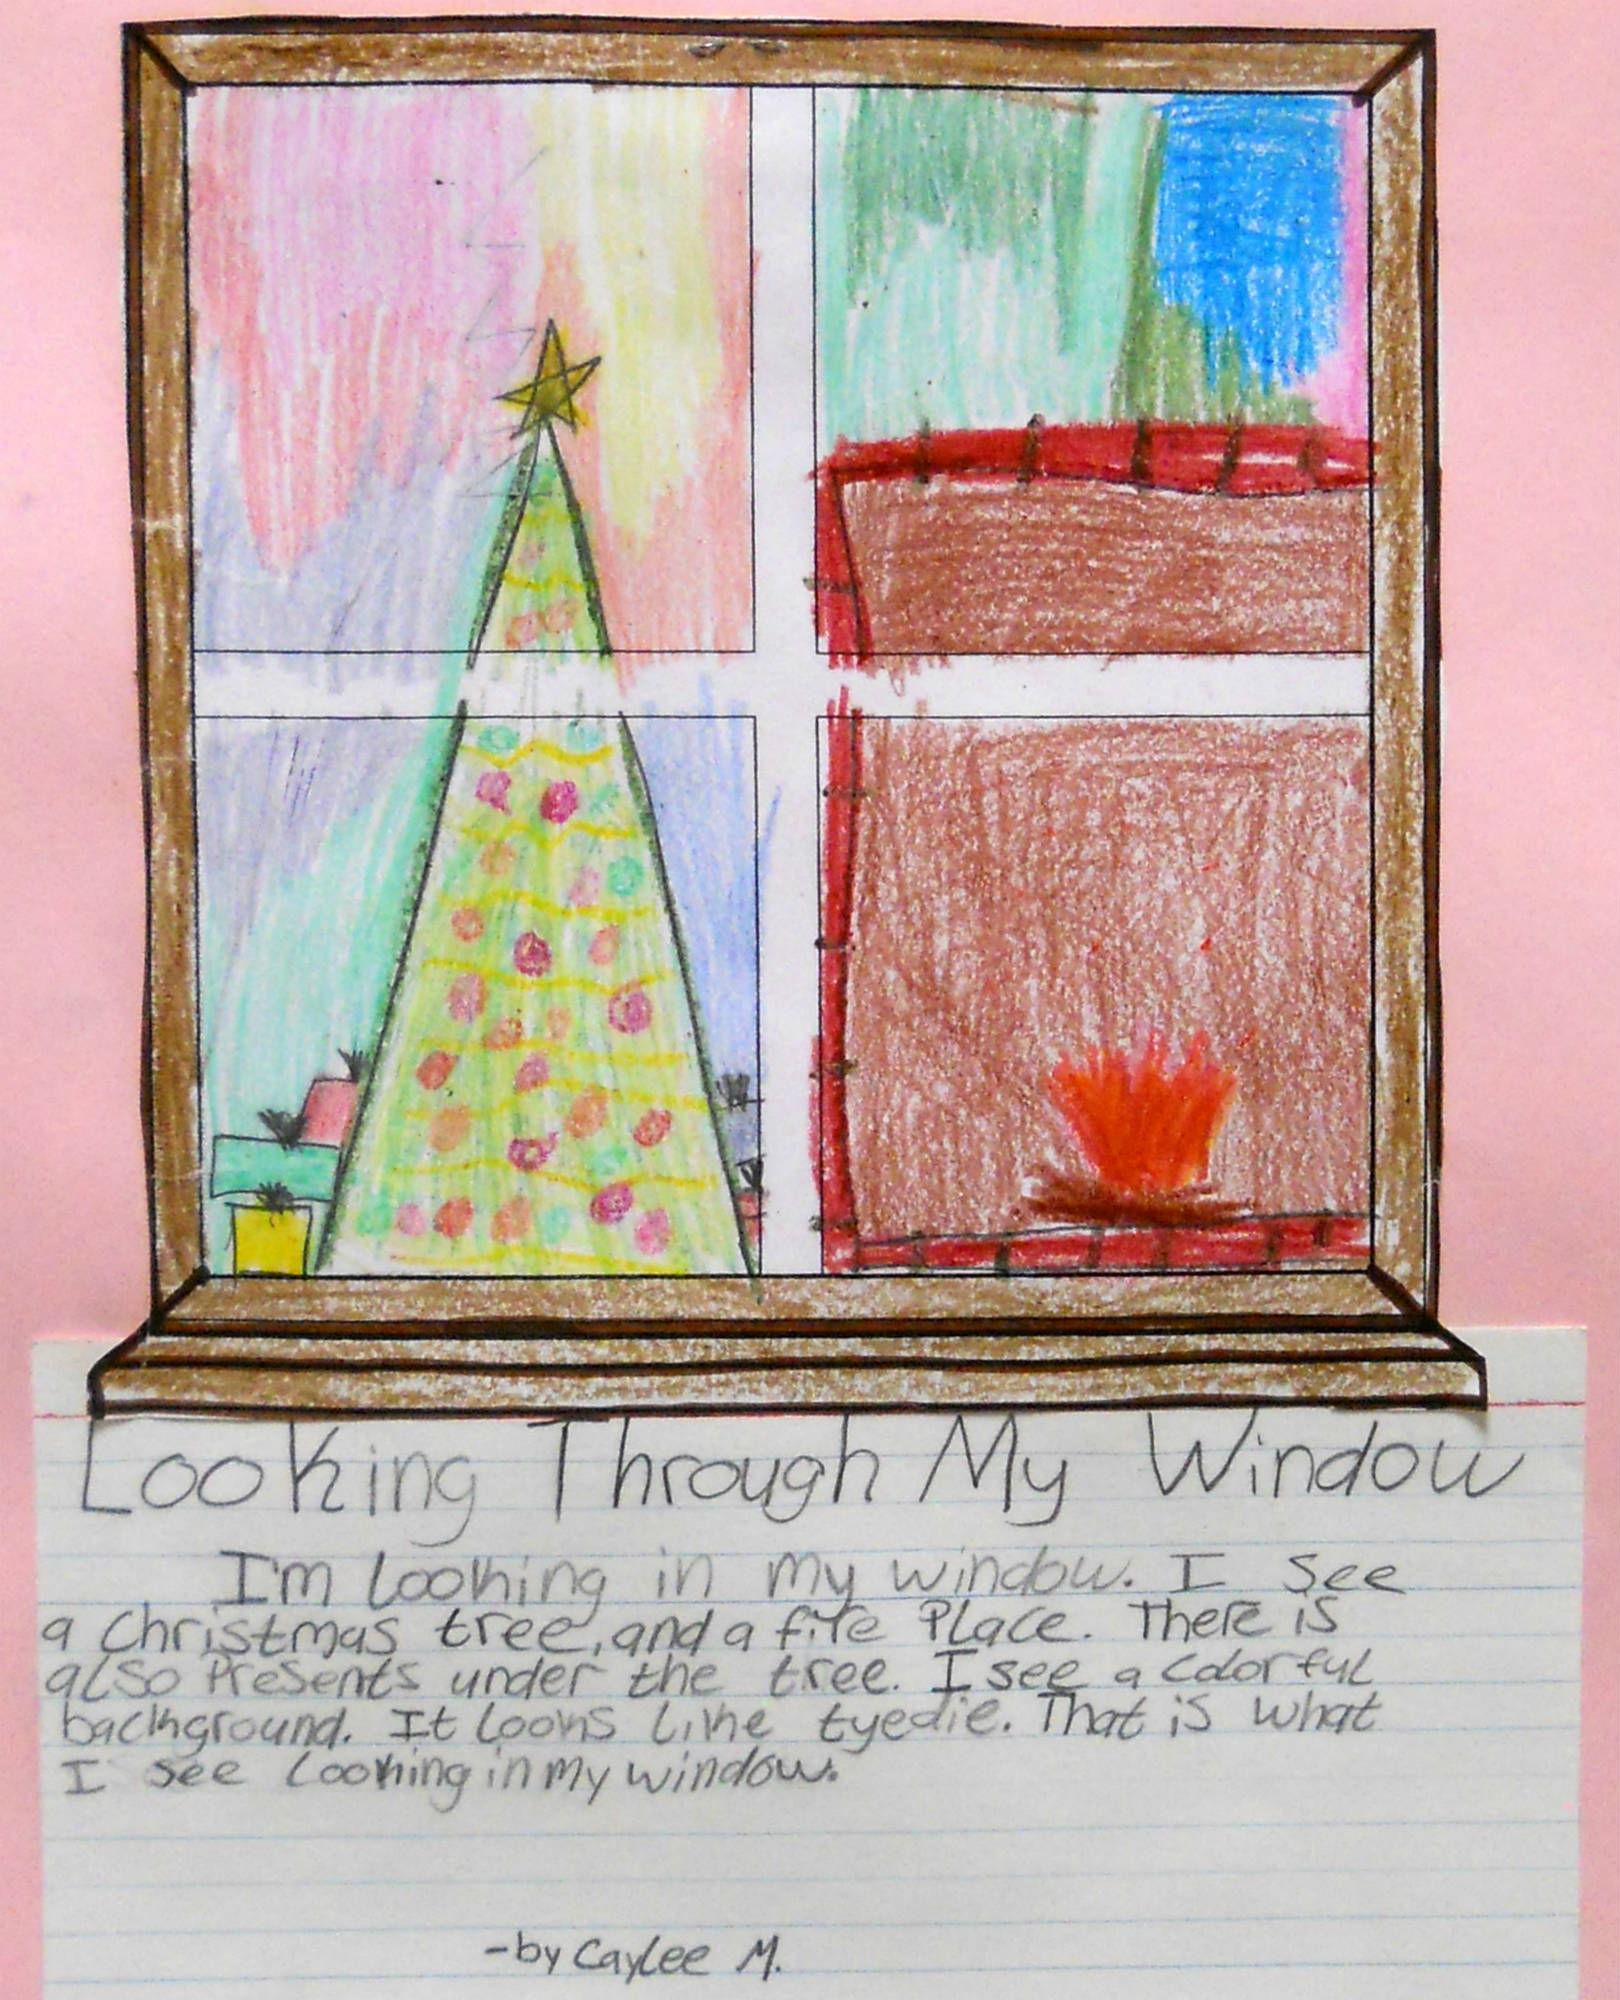 Looking Through My Window
I'm looking in my window. I see
a Christmas tree, and a fire Place. There is
also Presents under the tree. I see a colorful
background. It looks like tyedie. That is what
I see looking in my window.
-by Caylee M.